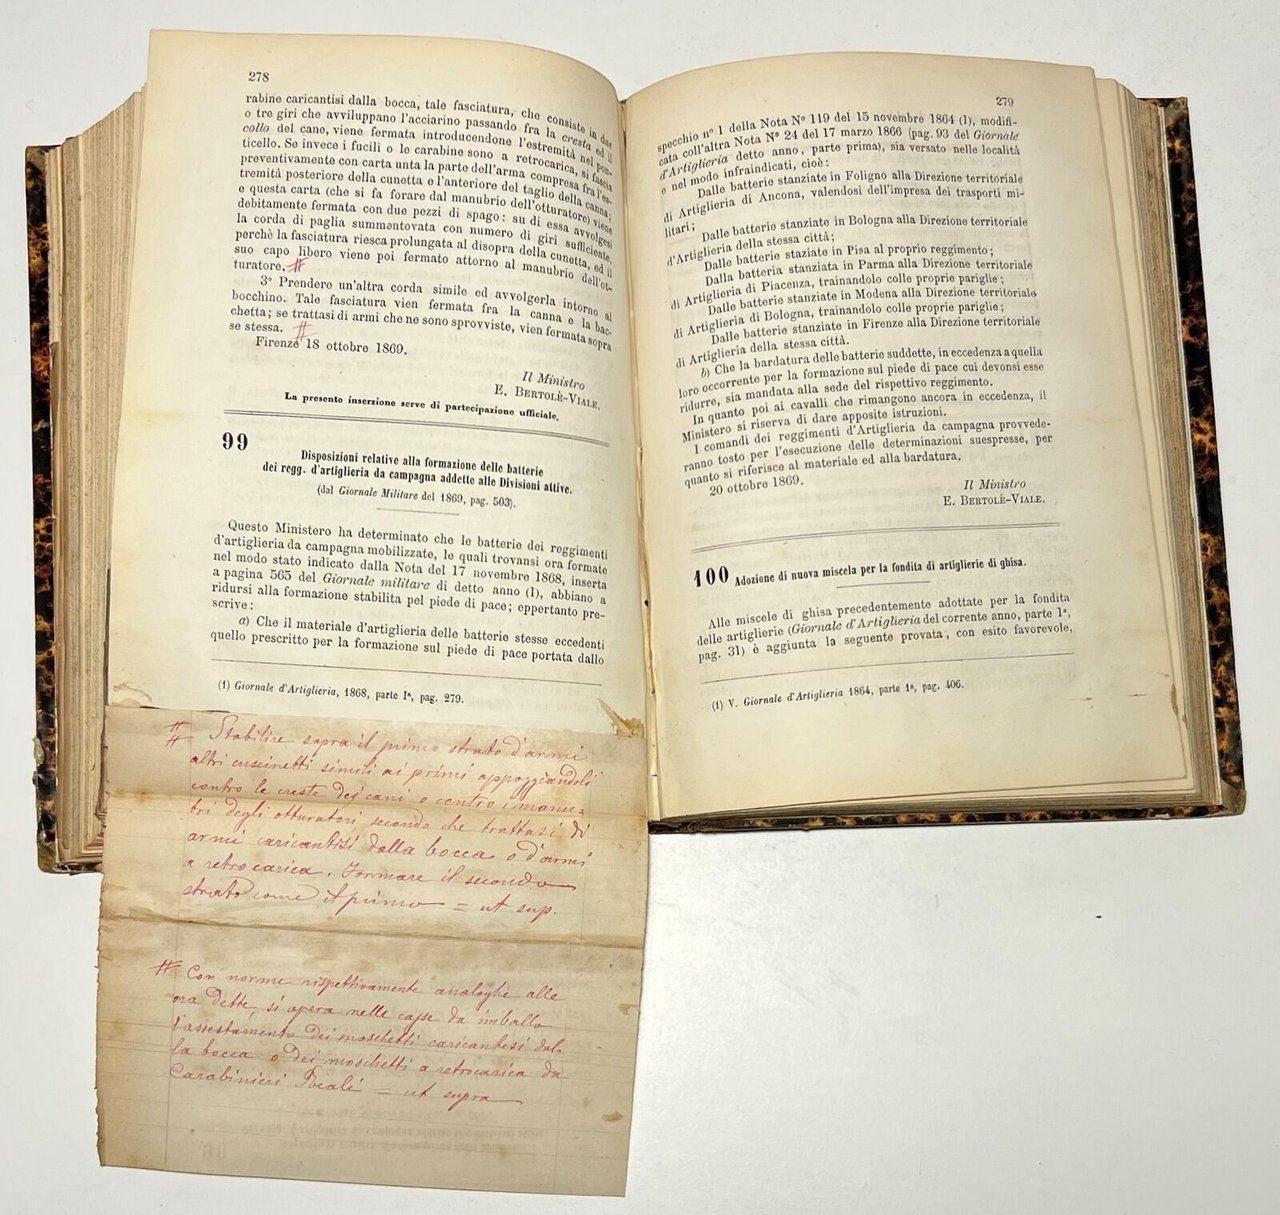 278
rabine caricantisi dalla bocca, tale fasciatura, che consiste in due
o tre giri che avviluppano l'acciarino passando fra la cresta ed il
collo del cane, viene fermata introducendone l'estremità nel pon-
ticello. Se invece i fucili o le carabine sono a retrocarica, si fascia
preventivamente con carta unta la parte dell'arma compresa fra l'es-
tremità posteriore della cunetta e l'anteriore del taglio della canna;
e questa carta (che si fa forare dal manubrio dell'otturatore) viene
debitamente fermata con due pezzi di spago: su di essa avvolgesi
la corda di paglia summentovata con numero di giri sufficiente,
perchè la fasciatura riesca prolungata al disopra della cunetta, ed il
suo capo libero viene poi fermato attorno al manubrio dell'ot-
turatore. #
3° Prendere un'altra corda simile ed avvolgerla intorno al
bocchino. Tale fasciatura vien fermata fra la canna e la bac-
chetta; se trattasi di armi che ne sono sprovviste, vien fermata sopra
se stessa. #
Firenze 18 ottobre 1869.
Il Ministro
E. BERTOLÈ-VIALE.
La presente inserzione serve di partecipazione ufficiale.
99
Disposizioni relative alla formazione delle batterie
dei regg. d'artiglieria da campagna addette alle Divisioni attive.
(dal Giornale Militare del 1869, pag. 503).
Questo Ministero ha determinato che le batterie dei reggimenti
d'artiglieria da campagna mobilizzate, le quali trovansi ora formate
nel modo stato indicato dalla Nota del 17 novembre 1868, inserta
a pagina 565 del Giornale militare di detto anno (1), abbiano a
ridursi alla formazione stabilita pel piede di pace; eppertanto pre-
scrive:
a) Che il materiale d'artiglieria delle batterie stesse eccedenti
quello prescritto per la formazione sul piede di pace portata dallo
(1) Giornale d'Artiglieria, 1868, parte Iª, pag. 279.
# # Stabilire sopra il primo strato d'armi
altri cuscinetti simili ai primi appoggiandoli
contro le creste dei cani o contro i manu-
bri degli otturatori secondo che trattasi di
armi caricantisi dalla bocca o d'armi
a retrocarica. Formare il secondo
strato come il primo = ut sup.
# Con norme rispettivamente analoghe alle
ora dette, si opera nelle casse da imballo
l'assestamento dei moschetti caricantesi dal-
la bocca o dei moschetti a retrocarica da
Carabinieri Reali = ut supra
279
specchio n° 1 della Nota N° 119 del 15 novembre 1864 (1), modifi-
cata coll'altra Nota N° 24 del 17 marzo 1866 (pag. 93 del Giornale
d'Artiglieria detto anno, parte prima), sia versato nelle località
e nel modo infraindicati, cioè:
Dalle batterie stanziate in Foligno alla Direzione territoriale
di Artiglieria di Ancona, valendosi dell'impresa dei trasporti mi-
litari;
Dalle batterie stanziate in Bologna alla Direzione territoriale
d'Artiglieria della stessa città;
Dalle batterie staziate in Pisa al proprio reggimento;
Dalla batteria stanziata in Parma alla Direzione territoriale
di Artiglieria di Piacenza, trainandolo colle proprie pariglie;
Dalle batterie stanziate in Modena alla Direzione territoriale
di Artiglieria di Bologna, trainandolo colle proprie pariglie;
Dalle batterie stanziate in Firenze alla Direzione territoriale
di Artiglieria della stessa città.
b) Che la bardatura delle batterie suddette, in eccedenza a quella
loro occorrente per la formazione sul piede di pace cui devonsi esse
ridurre, sia mandata alla sede del rispettivo reggimento.
In quanto poi ai cavalli che rimangono ancora in eccedenza, il
Ministero si riserva di dare apposite istruzioni.
I comandi dei reggimenti d'Artiglieria da campagna provvede-
ranno tosto per l'esecuzione delle determinazioni suespresse, per
quanto si riferisce al materiale ed alla bardatura.
20 ottobre 1869.
Il Ministro
E. BERTOLÈ-VIALE.
100 Adozione di nuova miscela per la fondita di artiglierie di ghisa.
Alle miscele di ghisa precedentemente adottate per la fondita
delle artiglierie (Giornale d'Artiglieria del corrente anno, parte 1ª,
pag. 31) è aggiunta la seguente provata, con esito favorevole,
(1) V. Giornale d'Artiglieria 1864, parte 1ª, pag. 406.